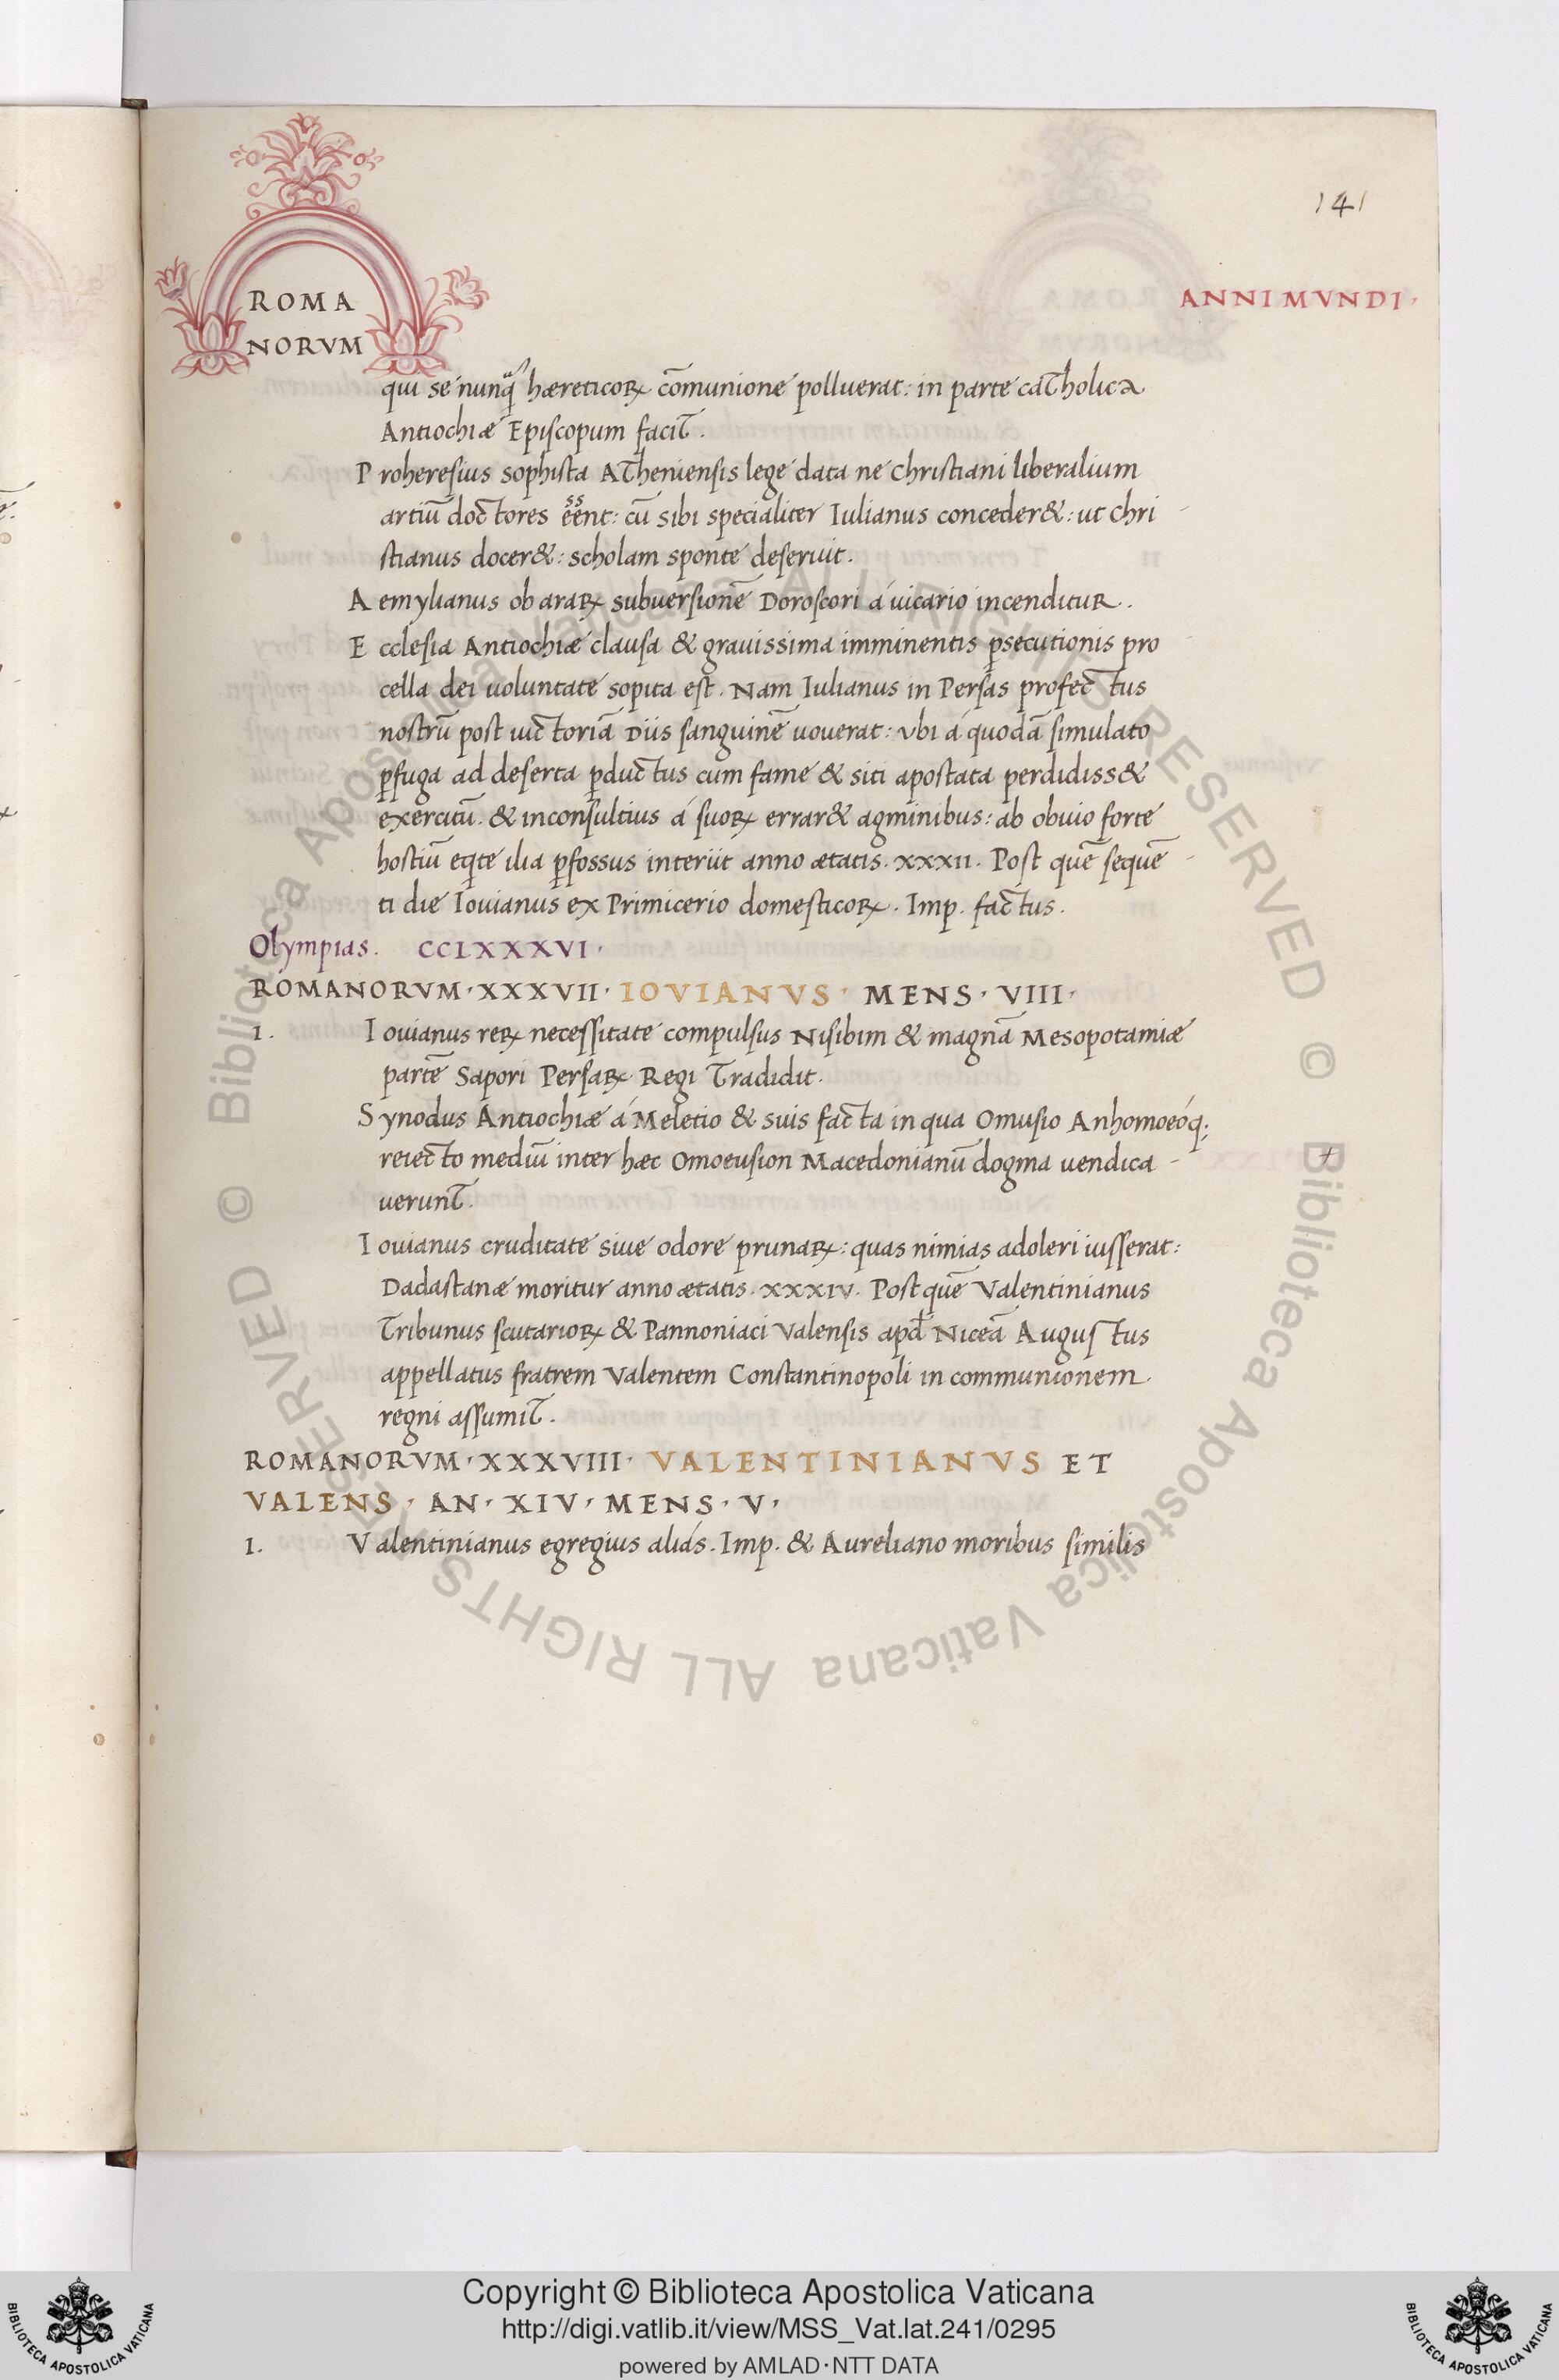 141
ROMA
NORVM
ANNI MVNDI ·
qui se nunq̃ hæreticoꝝ cõmunione polluerat: in parte catholica
Antiochiæ Episcopum facit.
Proheresius sophista Atheniensis lege data ne christiani liberalium
artiũ doctores eẽnt: cũ sibi specialiter Iulianus conceder&: ut chri-
stianus docer&: scholam sponte deseruit.
Aemylianus ob araꝝ subuersionẽ Doroscori á uicario incenditur.
Ecclesia Antiochiæ clausa & grauissima imminentis ꝑsecutionis pro-
cella dei uoluntate sopita est. Nam Iulianus in Persas profectus
nostrũ post uictoriã Diis sanguinẽ uouerat: Vbi á quodã simulato
ꝑfuga ad deserta ꝑductus cum fame & siti apostata perdidiss&
exercitũ. & inconsultius á suoꝝ errar& agminibus: ab obuio forte
hostiũ eqte ilia ꝑfossus interiit anno ætatis. xxxii. Post quẽ sequẽ-
ti die Iouianus ex Primicerio domesticoꝝ. Imp. factus.
Olympias. CCLXXXVI ·
ROMANORVM · XXXVII · IOVIANVS · MENS · VIII ·
1. Iouianus reꝝ necessitate compulsus Nisibim & magnã Mesopotamiæ
partẽ Sapori Persaꝝ Regi Tradidit.
Synodus Antiochiæ á Meletio & suis facta in qua Omusio Anhomoeóq;
reiecto mediũ inter hæc Omoeusion Macedonianũ dogma uendica-
uerunt.
Iouianus cruditate siue odore prunaꝝ: quas nimias adoleri iusserat:
Dadastanæ moritur anno ætatis. xxxiv. Post quẽ Valentinianus
Tribunus scutarioꝝ & Pannoniaci Valensis apđ Niceã Augustus
appellatus fratrem Valentem Constantinopoli in communionem
regni assumit.
ROMANORVM · XXXVIII · VALENTINIANVS ET
VALENS · AN · XIV · MENS · V ·
1. Valentinianus egregius aliás. Imp. & Aureliano moribus similis
© Biblioteca Apostolica Vaticana ALL RIGHTS RESERVED © Biblioteca Apostolica Vaticana ALL RIGHTS RESERVED
Copyright © Biblioteca Apostolica Vaticana
http://digi.vatlib.it/view/MSS_Vat.lat.241/0295
powered by AMLAD·NTT DATA
BIBLIOTECA APOSTOLICA VATICANA
BIBLIOTECA APOSTOLICA VATICANA